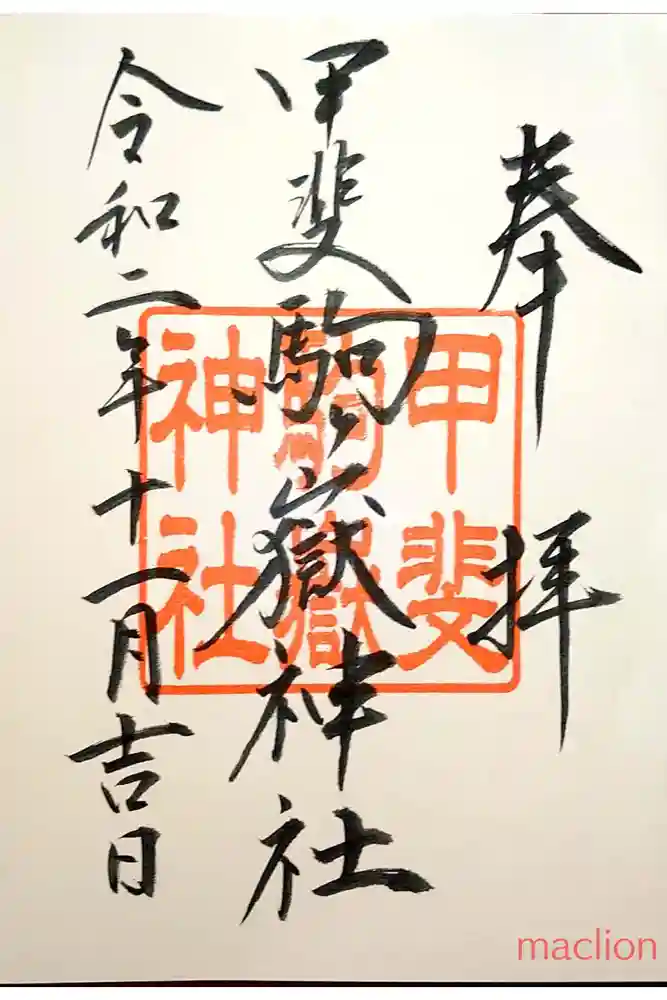 奉拝
甲斐駒ヶ嶽神社
令和二年十一月吉日
甲斐
駒嶽
神社
maclion